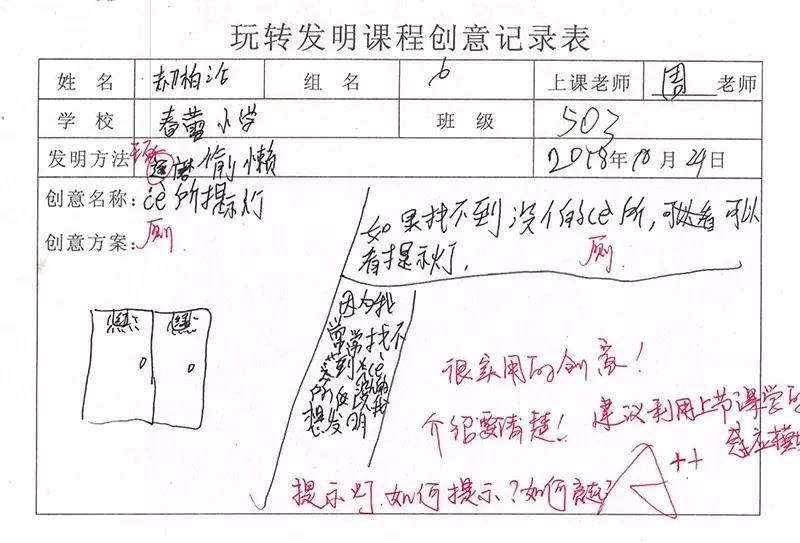 玩转发明课程创意记录表
姓 名 郝柏  组 名 6 上课老师 周 老师
学 校 春蕾小学 班 级 503
发明方法 偷懒 2018年10月24日
创意名称：cè所提示灯
厕
创意方案：
如果找不到没人的cè所，可以看可以
看提示灯．
厕
因为我
常常找不
到
想发明
很实用的创意！
介绍要清楚！建议利用上节课学的
感应模
提示灯．如何提示？如何亮起？
A++